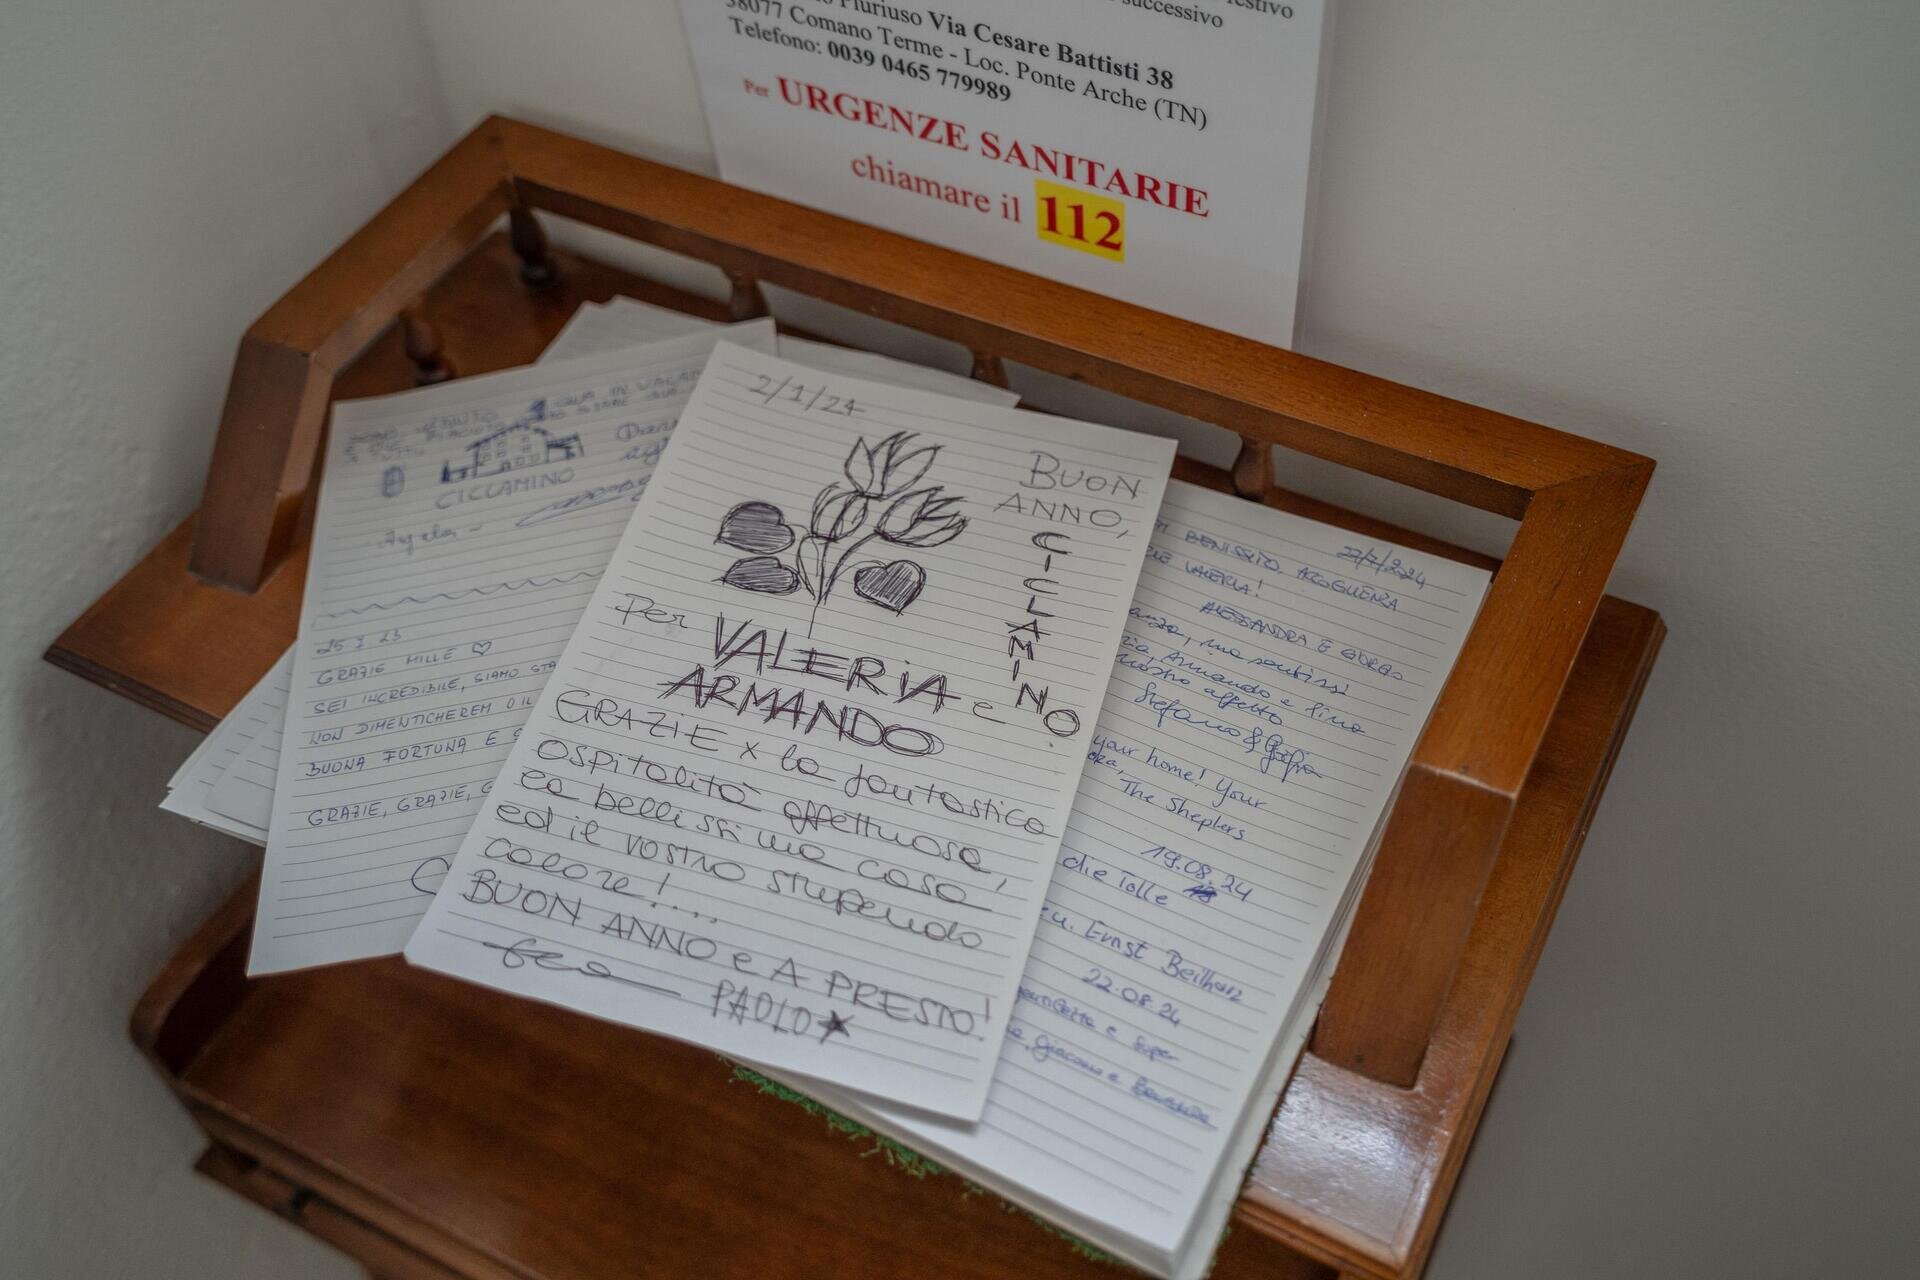 festivo
successivo
Pluriuso Via Cesare Battisti 38
38077 Comano Terme - Loc. Ponte Arche (TN)
Telefono: 0039 0465 779989
Per URGENZE SANITARIE
chiamare il 112
QUA IN VACAN
CICLAMINO
Angela
25.7.23
GRAZIE MILLE ♡
SEI INCREDIBILE, SIAMO STA
NON DIMENTICHEREM O IL
BUONA FORTUNA E
GRAZIE, GRAZIE, G
2/1/24
BUON
ANNO,
CICLAMINO
Per VALERIA e
ARMANDO
GRAZIE x la fantastica
ospitalità affettuosa,
la bellissima casa
ed il vostro stupendo
calore!...
BUON ANNO e A PRESTO!
PAOLO
27/7/2024
BENISSIMO, ACCOGLIENZA
VALERIA!
ALESSANDRA E
Armando e
nostro affetto
Stefano &
your home! Your
The Sheplers
19.08.24
die Tolle
u. Ernst Beilharz
22.08.24
e super
Giacomo e